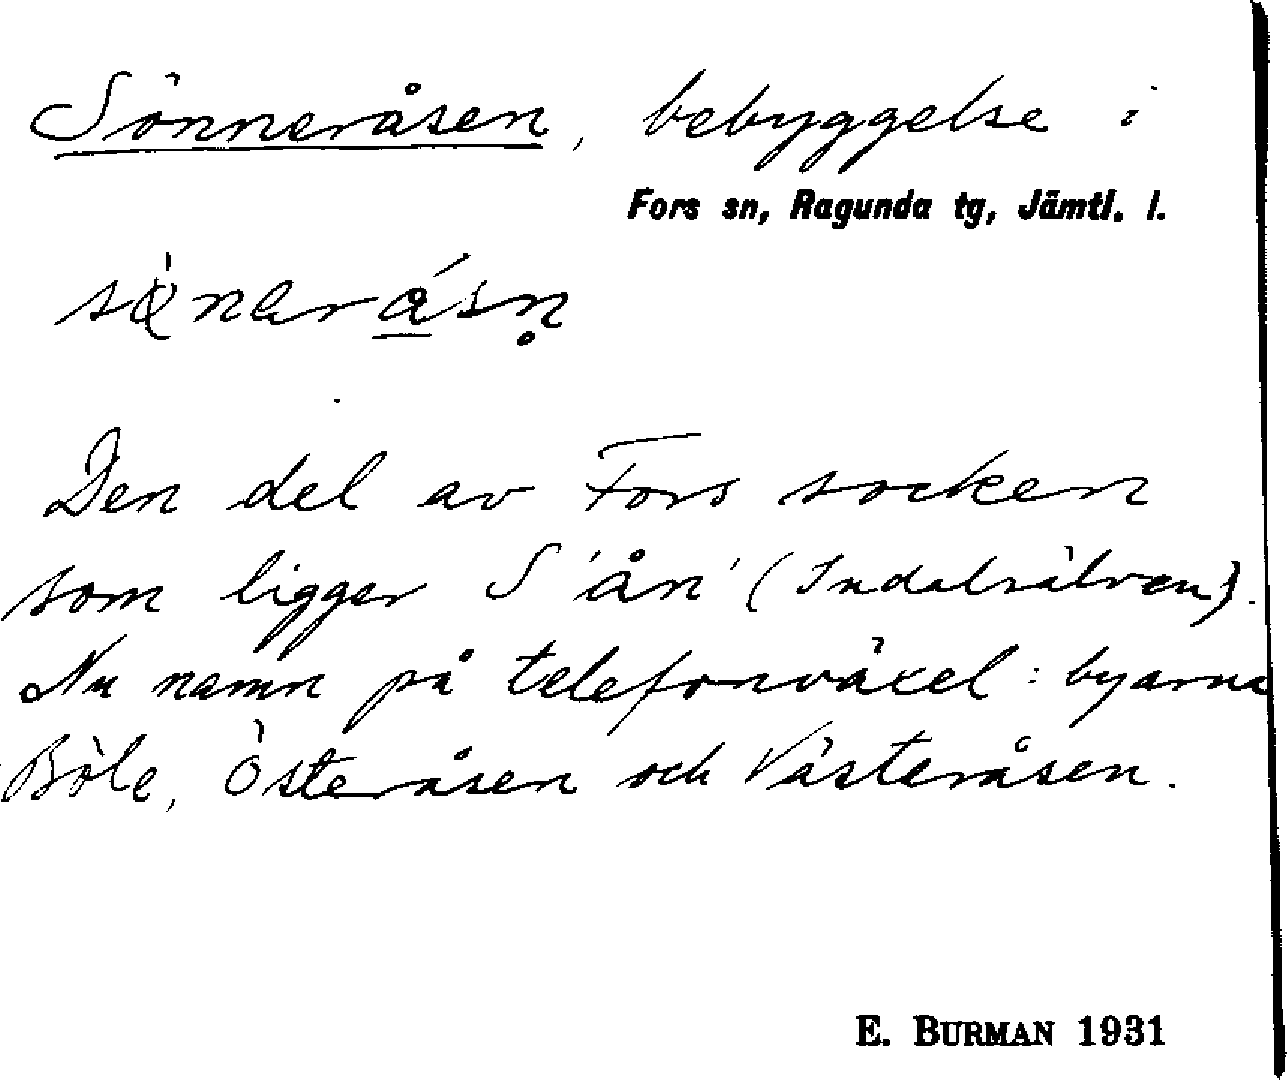 Sönneråsen, bebyggelse i
Fors sn, Ragunda tg, Jämtl. l.
Den del av Fors socken
som ligger S 'ån' (Indalsälven).
Nu namn på telefonväxel: byarna
Böle, Österåsen och Västeråsen.
E. BURMAN 1931